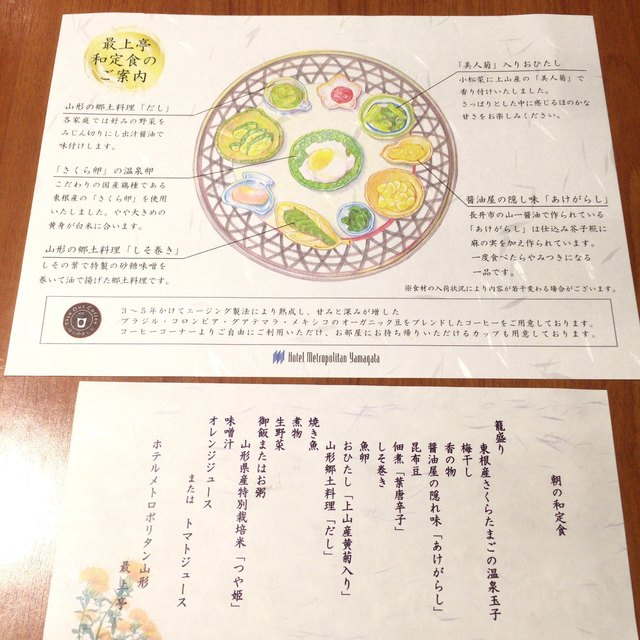 最上亭
和定食の
ご案内
山形の郷土料理「だし」
各家庭では好みの野菜を
みじん切りにし出汁醤油で
味付けします。
「さくら卵」の温泉卵
こだわりの国産鶏種である
東根産の「さくら卵」を使用
いたしました。やや大きめの
黄身が白米に合います。
山形の郷土料理「しそ巻き」
しその葉で特製の砂糖味噌を
巻いて油で揚げた郷土料理です。
「美人菊」入りおひたし
小松菜に上山産の「美人菊」で
香り付けいたしました。
さっぱりとした中に感じるほのかな
甘さをお楽しみください。
醤油屋の隠し味「あけがらし」
長井市の山一醤油で作られている
「あけがらし」は仕込み茶子糀に
麻の実を加え作られています。
一度食べたらやみつきになる
一品です。
※食材の入荷状況により内容が若干変わる場合がございます。
3~5年かけてエージング製法により熟成し、甘みと深みが増した
ブラジル・コロンビア・グアテマラ・メキシコのオーガニック豆をブレンドしたコーヒーをご用意しております。
コーヒーコーナーよりご自由にご利用いただけ、お部屋にお持ち帰りいただけるカップも用意しております。
Hotel Metropolitan Yamagata
朝の和定食
籠盛り
東根産さくらたまごの温泉玉子
梅干し
香の物
醤油屋の隠れ味「あけがらし」
昆布豆
佃煮「葉唐辛子」
しそ巻き
魚卵
おひたし「上山産黄菊入り」
山形郷土料理「だし」
焼き魚
煮物
生野菜
御飯またはお粥
山形県産特別栽培米「つや姫」
味噌汁
オレンジジュース
または トマトジュース
ホテルメトロポリタン山形
最上亭